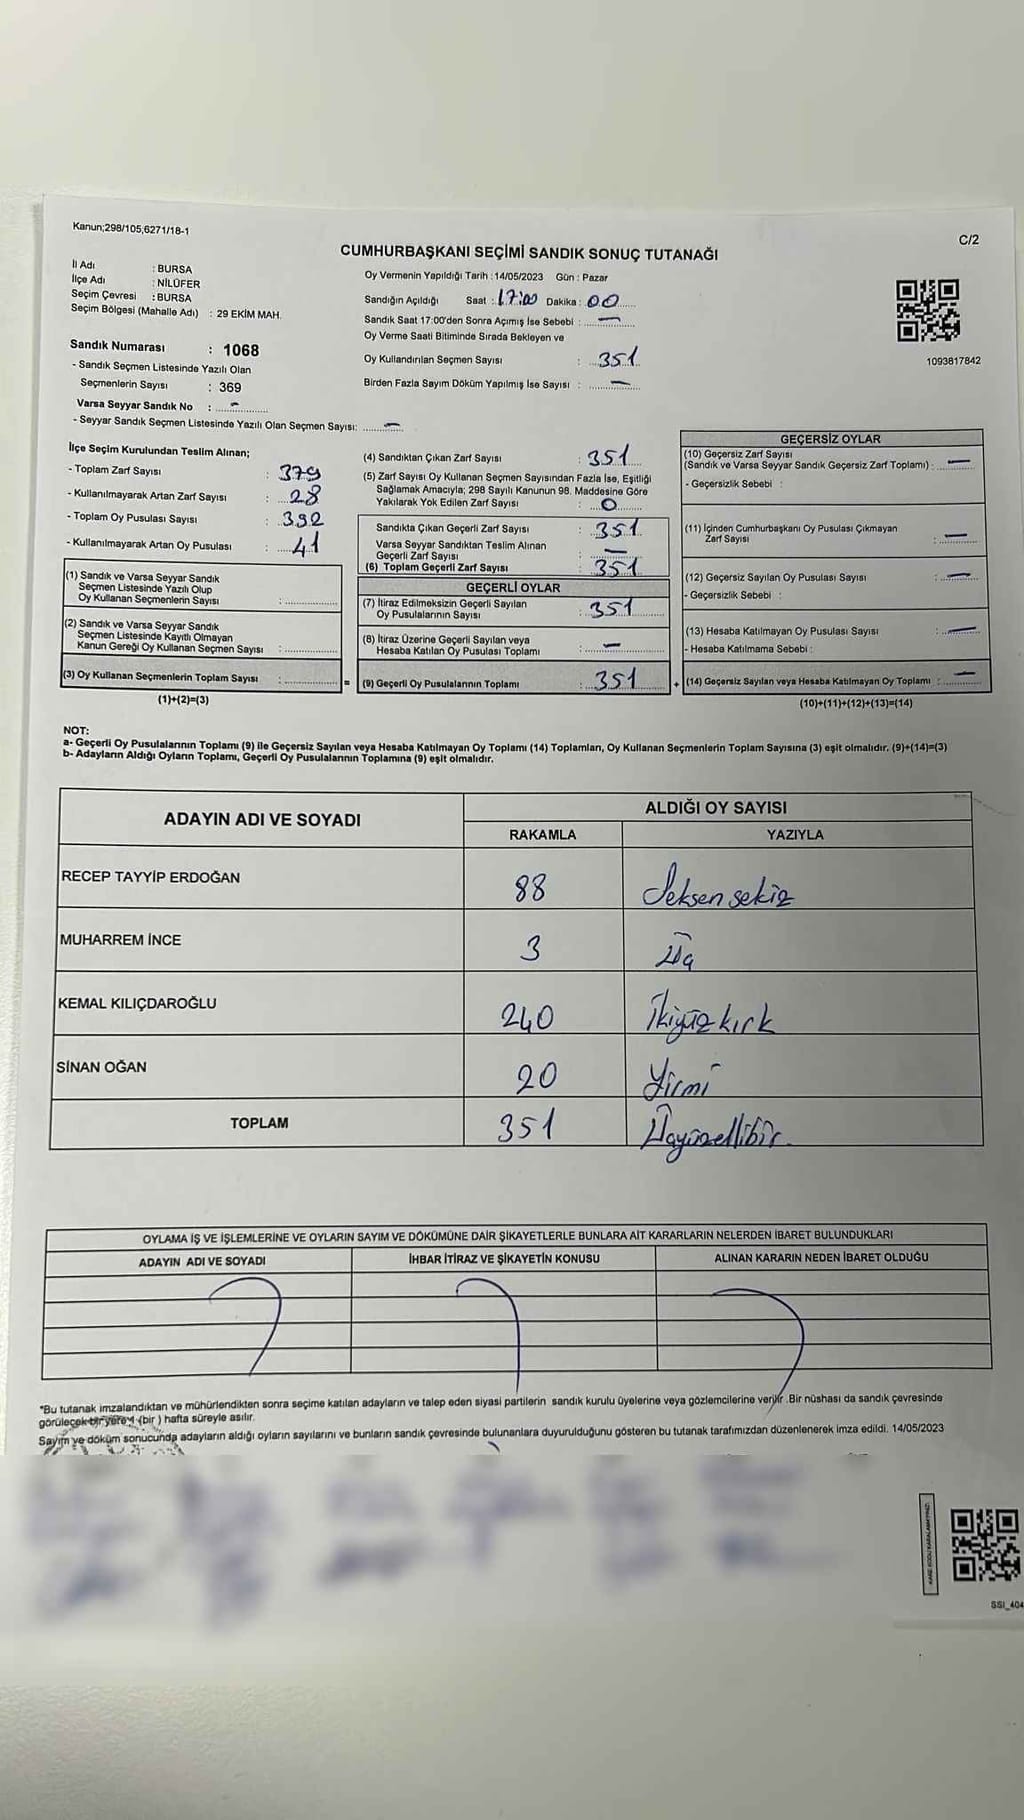 Kanun;298/105,6271/18-1
C/2
CUMHURBAŞKANI SEÇİMİ SANDIK SONUÇ TUTANAĞI
İl Adı : BURSA
İlçe Adı : NİLÜFER
Seçim Çevresi : BURSA
Seçim Bölgesi (Mahalle Adı) : 29 EKİM MAH.
Sandık Numarası : 1068
- Sandık Seçmen Listesinde Yazılı Olan
Seçmenlerin Sayısı : 369
Varsa Seyyar Sandık No : -
- Seyyar Sandık Seçmen Listesinde Yazılı Olan Seçmen Sayısı: -
Oy Vermenin Yapıldığı Tarih : 14/05/2023 Gün : Pazar
Sandığın Açıldığı Saat : 17:00 Dakika : 00
Sandık Saat 17:00'den Sonra Açımış İse Sebebi : -
Oy Verme Saati Bitiminde Sırada Bekleyen ve
Oy Kullandırılan Seçmen Sayısı : 351
Birden Fazla Sayım Döküm Yapılmış İse Sayısı : -
1093817842
İlçe Seçim Kurulundan Teslim Alınan;
- Toplam Zarf Sayısı : 379
- Kullanılmayarak Artan Zarf Sayısı : 28
- Toplam Oy Pusulası Sayısı : 392
- Kullanılmayarak Artan Oy Pusulası : 41
(1) Sandık ve Varsa Seyyar Sandık
Seçmen Listesinde Yazılı Olup
Oy Kullanan Seçmenlerin Sayısı :
(2) Sandık ve Varsa Seyyar Sandık
Seçmen Listesinde Kayıtlı Olmayan
Kanun Gereği Oy Kullanan Seçmen Sayısı :
(3) Oy Kullanan Seçmenlerin Toplam Sayısı :
(1)+(2)=(3)
=
(4) Sandıktan Çıkan Zarf Sayısı : 351
(5) Zarf Sayısı Oy Kullanan Seçmen Sayısından Fazla İse, Eşitliği
Sağlamak Amacıyla; 298 Sayılı Kanunun 98. Maddesine Göre
Yakılarak Yok Edilen Zarf Sayısı : 0
Sandıkta Çıkan Geçerli Zarf Sayısı : 351
Varsa Seyyar Sandıktan Teslim Alınan
Geçerli Zarf Sayısı : -
(6) Toplam Geçerli Zarf Sayısı : 351
GEÇERLİ OYLAR
(7) İtiraz Edilmeksizin Geçerli Sayılan
Oy Pusulalarının Sayısı : 351
(8) İtiraz Üzerine Geçerli Sayılan veya
Hesaba Katılan Oy Pusulası Toplamı : -
(9) Geçerli Oy Pusulalarının Toplamı : 351
+
GEÇERSİZ OYLAR
(10) Geçersiz Zarf Sayısı
(Sandık ve Varsa Seyyar Sandık Geçersiz Zarf Toplamı) : -
- Geçersizlik Sebebi :
(11) İçinden Cumhurbaşkanı Oy Pusulası Çıkmayan
Zarf Sayısı : -
(12) Geçersiz Sayılan Oy Pusulası Sayısı : -
- Geçersizlik Sebebi :
(13) Hesaba Katılmayan Oy Pusulası Sayısı : -
- Hesaba Katılmama Sebebi :
(14) Geçersiz Sayılan veya Hesaba Katılmayan Oy Toplamı : -
(10)+(11)+(12)+(13)=(14)
NOT:
a- Geçerli Oy Pusulalarının Toplamı (9) ile Geçersiz Sayılan veya Hesaba Katılmayan Oy Toplamı (14) Toplamları, Oy Kullanan Seçmenlerin Toplam Sayısına (3) eşit olmalıdır. (9)+(14)=(3)
b- Adayların Aldığı Oyların Toplamı, Geçerli Oy Pusulalarının Toplamına (9) eşit olmalıdır.
ADAYIN ADI VE SOYADI
ALDIĞI OY SAYISI
RAKAMLA YAZIYLA
RECEP TAYYİP ERDOĞAN 88 Seksen sekiz
MUHARREM İNCE 3 Üç
KEMAL KILIÇDAROĞLU 240 İkiyüz kırk
SİNAN OĞAN 20 Yirmi
TOPLAM 351 Üçyüzellibir.
OYLAMA İŞ VE İŞLEMLERİNE VE OYLARIN SAYIM VE DÖKÜMÜNE DAİR ŞİKAYETLERLE BUNLARA AİT KARARLARIN NELERDEN İBARET BULUNDUKLARI
ADAYIN ADI VE SOYADI İHBAR İTİRAZ VE ŞİKAYETİN KONUSU ALINAN KARARIN NEDEN İBARET OLDUĞU
*Bu tutanak imzalandıktan ve mühürlendikten sonra seçime katılan adayların ve talep eden siyasi partilerin sandık kurulu üyelerine veya gözlemcilerine verilir. Bir nüshası da sandık çevresinde
görülecek bir yere 1 (bir ) hafta süreyle asılır.
Sayım ve döküm sonucunda adayların aldığı oyların sayılarını ve bunların sandık çevresinde bulunanlara duyurulduğunu gösteren bu tutanak tarafımızdan düzenlenerek imza edildi. 14/05/2023
SSI_404